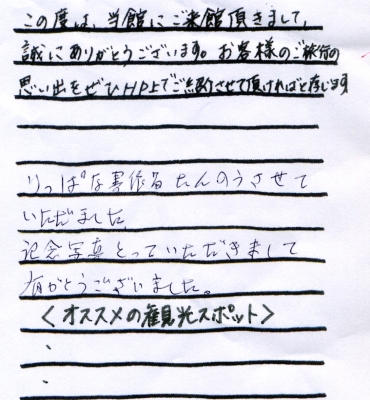 この度は、当館にご来館頂きまして、
誠にありがとうございます。お客様のご旅行の
思い出をぜひHP上でご紹介させて頂ければと存じます
りっぱな たんのうさせて
いただました
記念写真とっていただきまして
有がとうございました。
＜オススメの観光スポット＞
・
・